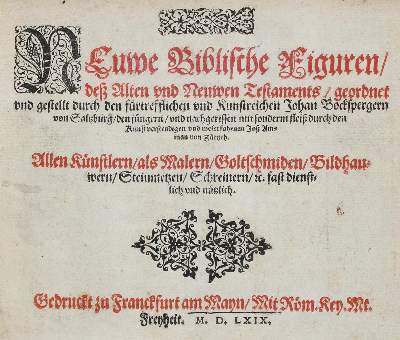 NEuwe Biblische Figuren/
deß Alten vnd Neuwen Testaments/ geordnet
vnd gestellt durch den fürtrefflichen vnd Kunstreichen Johan Bockspergern
von Saltzburg/ den jüngern/ vnd nachgerissen mit sonderm fleiß durch den
Kunstverstendigen vnd wolerfahrnen Joß Am-
man von Zürych.
Allen Künstlern/ als Malern/ Goltschmiden/ Bildhau-
wern/ Steinmetzen/ Schreinern/ ꝛc. fast dienst-
lich vnd nützlich.
Gedruckt zu Franckfurt am Mayn/ Mit Röm. Key. Mt.
Freyheit. M. D. LXIX.